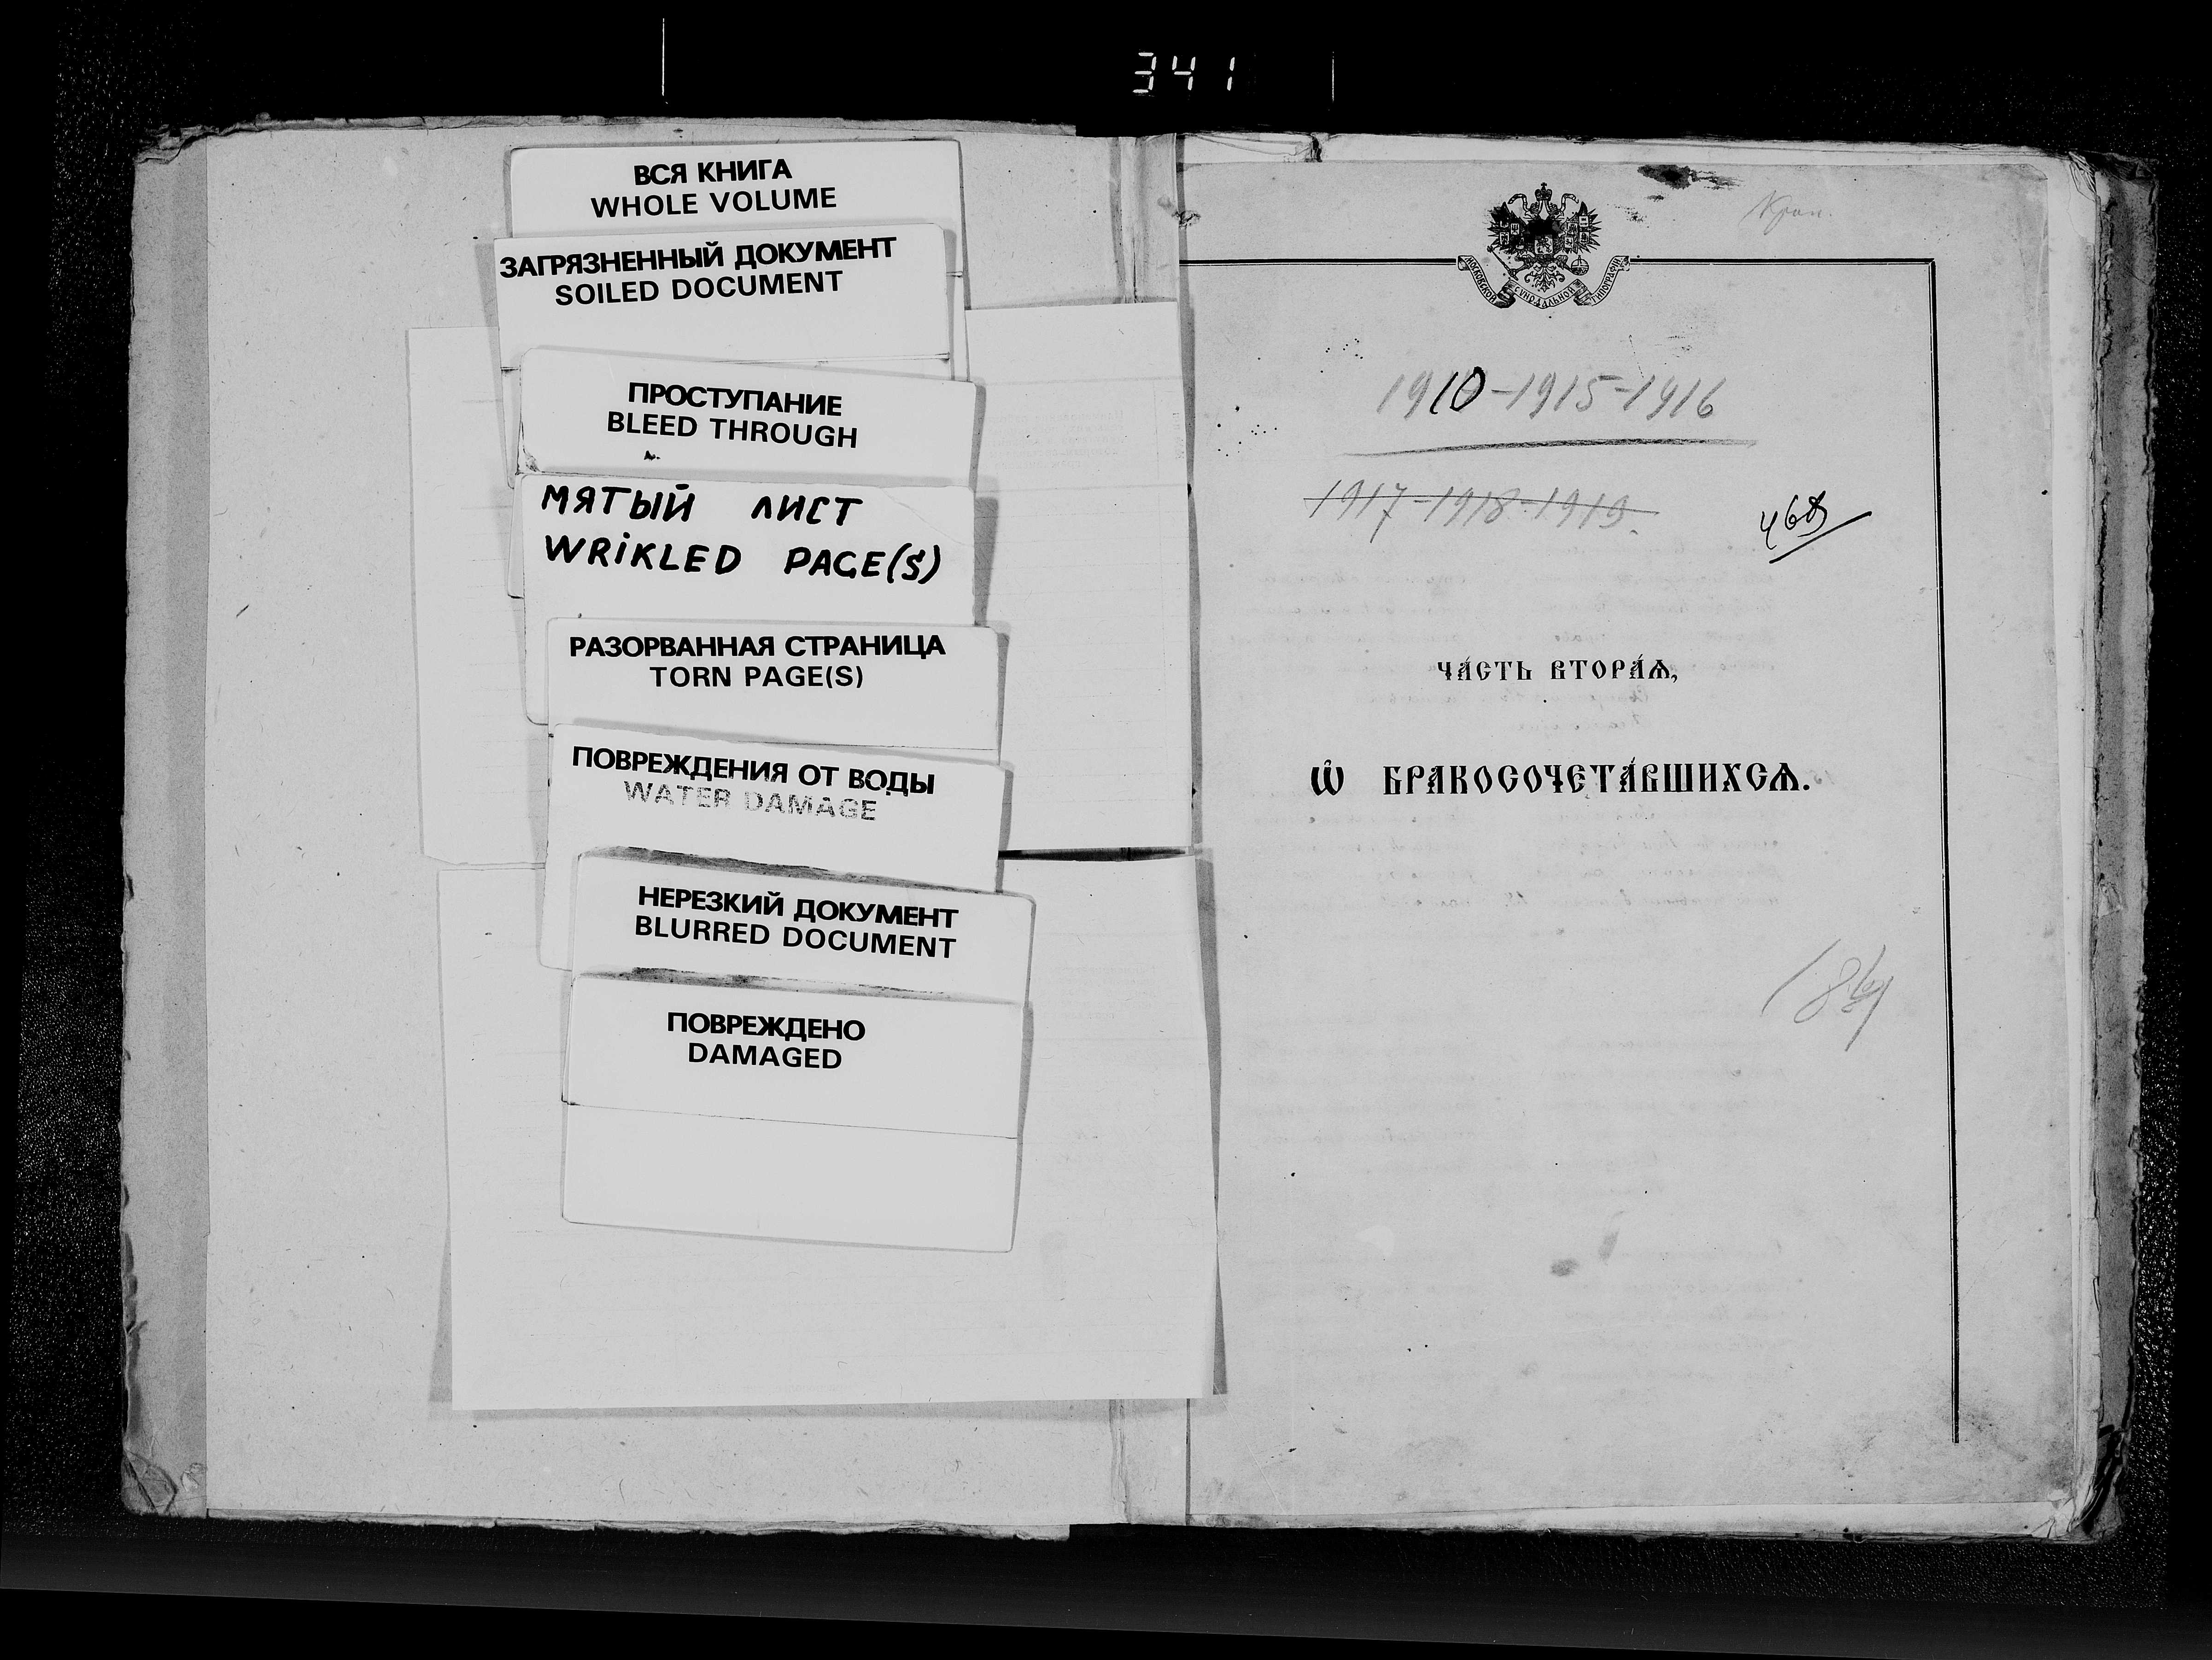 341
ВСЯ КНИГА
WHOLE VOLUME
ЗАГРЯЗНЕННЫЙ ДОКУМЕНТ
SOILED DOCUMENT
ПРОСТУПАНИЕ
BLEED THROUGH
МЯТЫЙ ЛИСТ
WRIKLED PAGE(S)
РАЗОРВАННАЯ СТРАНИЦА
TORN PAGE(S)
ПОВРЕЖДЕНИЯ ОТ ВОДЫ
WATER DAMAGE
НЕРЕЗКИЙ ДОКУМЕНТ
BLURRED DOCUMENT
ПОВРЕЖДЕНО
DAMAGED
МОСКОВСКОЙ СѴНОДАЛЬНОЙ ТИПОГРАФIИ
1910-1915-1916
1917-1918-1919.
ЧА́СТЬ ВТОРА́Ѧ,
Ѽ БРАКОСОЧЕТА́ВШИХСѦ.